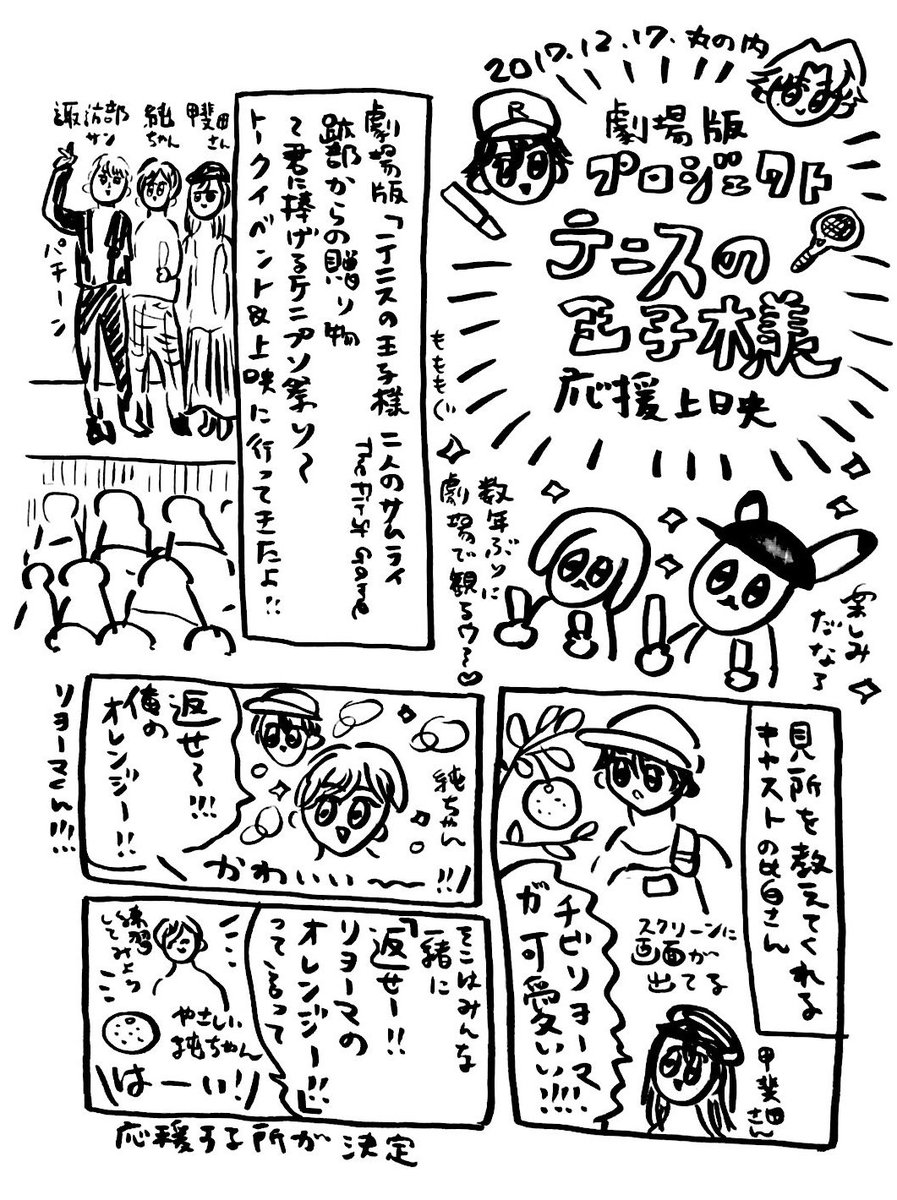 2017.12.17.丸の内
劇場版
プロジェクト
テニスの
王子様
応援上映
R
楽しみ
だなろ
数年ぶりに
劇場で観るウ〜♡
もももぐ
劇場版「テニスの王子様 二人のサムライ
The First Game
跡部からの贈り物
て君に捧げるテニプリ祭り〜
トークイベント&上映に行ってきたよ!!
甲斐田
さん
純
ちゃん
諏訪部
サン
パチーン
見所を教えてくれる
キャストの皆さん
スクリーンに
画面が
出てる
チビリョーマ
が可愛い!!!!
甲斐田
さん
純ちゃん
返せ〜!!!
俺の
オレンジー!!
かわいい〜〜!!
リョーマくん!!!
そこはみんな
一緒に
「返せー!!
リョーマの
オレンジー!!」
って言って
練習
してみよう
やさしい
純ちゃん
はーい!
応援する所が決定